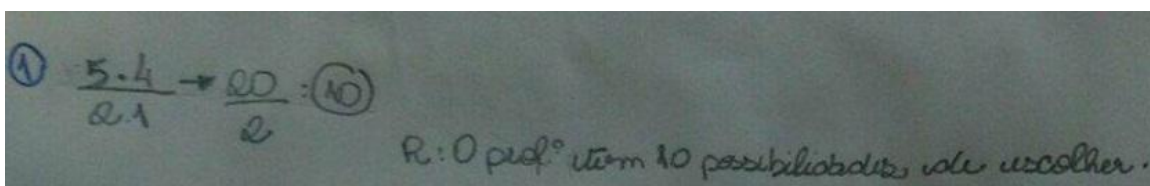 ① 5.4/2.1 → 20/2 : 10
R: O prof.º tem 10 possibilidades de escolher.